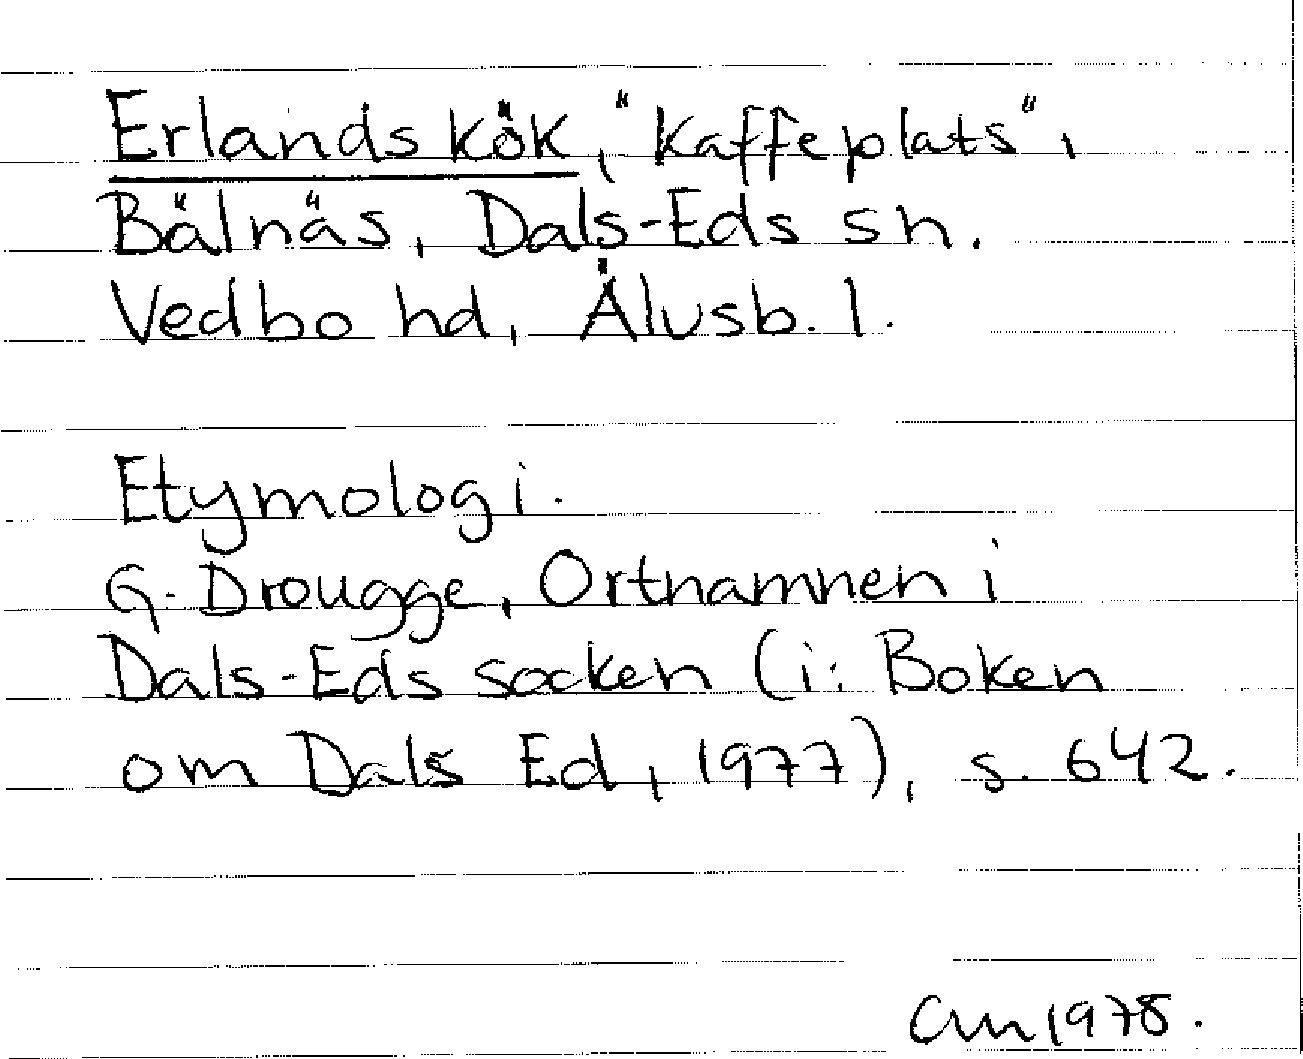 Erlands kök, "kaffeplats",
Bälnäs, Dals-Eds sn.
Vedbo hd, Älvsb. l.
Etymologi.
G. Drougge, Ortnamnen i
Dals-Eds socken (i: Boken
om Dals Ed, 1977), s. 642.
CM 1978.